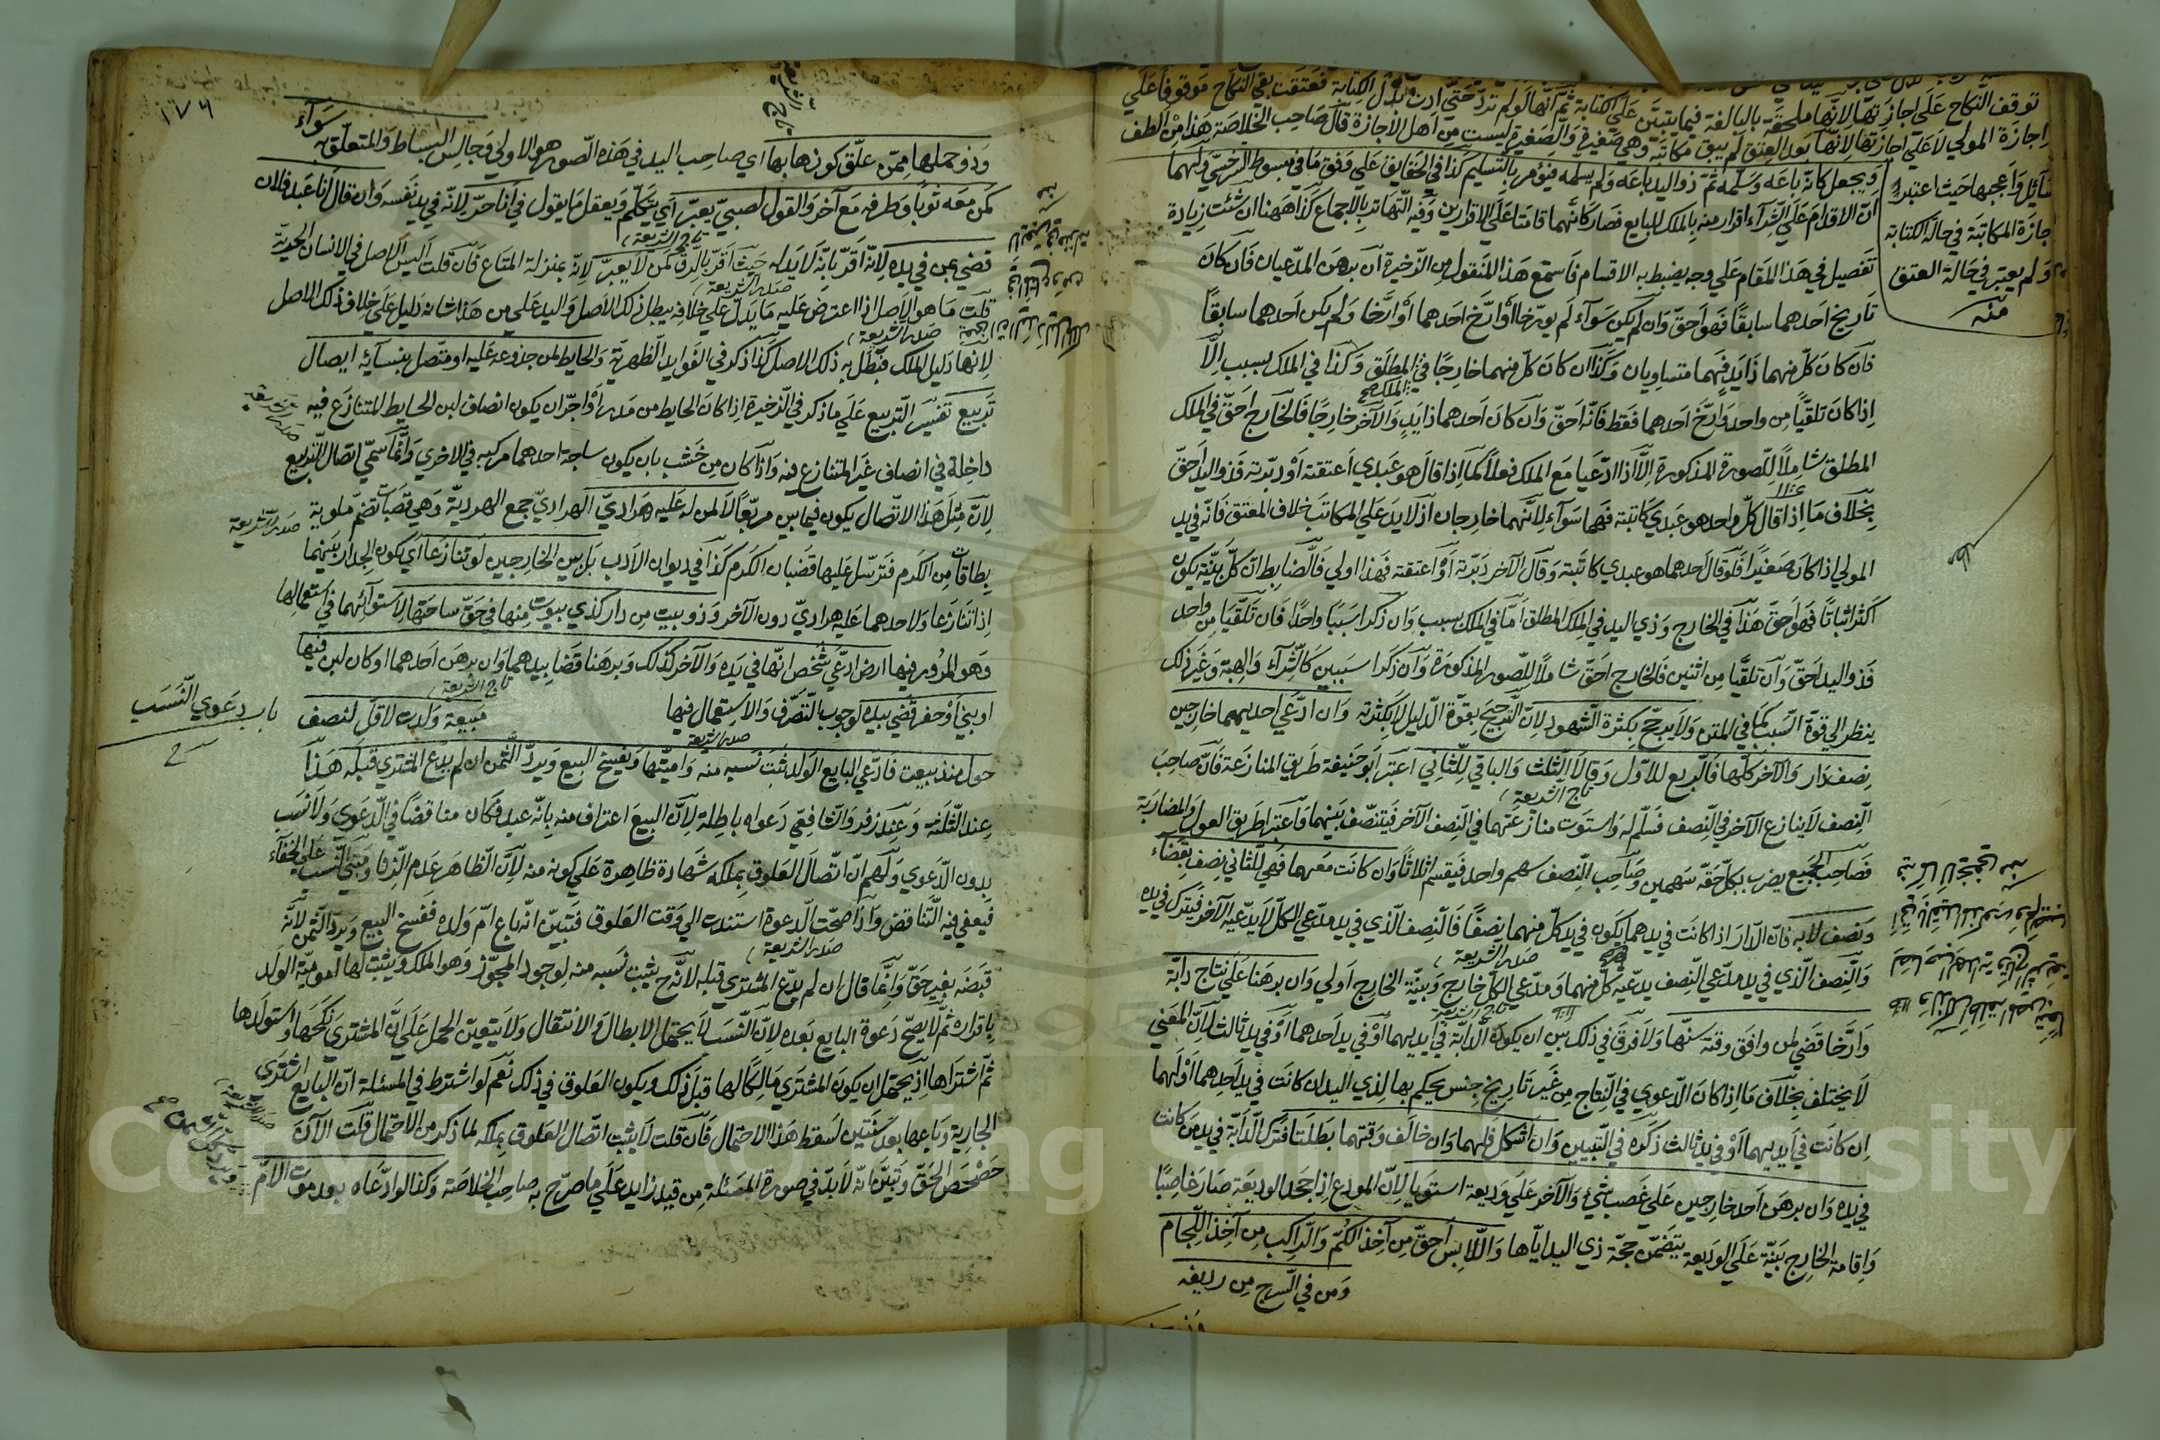 توقف النكاح على اجازتها لانها ملحقة بالبالغة فيما يبتني على الكتابة ثم انها لو لم ترد حتى ادت بدل الكتابة فعتقت بقي النكاح موقوفا على
اجازة المولى لا على اجازتها لانها بعد العتق لم يبق مكاتبة وهي صغيرة والصغيرة ليست من اهل الاجازة قال صاحب الخلاصة هذا من الطف
مسائل واعجبها حيث اعتبر
اجازة المكاتبة في حالة الكتابة
ولم يعتبر في حالة العتق
منه
ويجعل كانه باعه وسلمه ثم ذو اليد باعه ولم يسلمه فيؤمر بالتسليم كذا في الحقايق على وفق ما في مبسوط السرخسي ولهما
ان الاقدام على الشراء اقرار منه بالملك للبايع فصار كانهما قامتا على الاقرارين وفيه التهاتر بالاجماع كذا ههنا ان شئت زيادة
تفصيل في هذا المقام على وجه يضبط به الاقسام فاستمع هذا المنقول من الذخيرة ان برهن المدعيان فان كان
تاريخ احدهما سابقا فهو احق وان لم يكن سواء لم يورخا او ارخ احدهما او ارخا ولم يكن احدهما سابقا
فان كان كل منهما ذا يد فهما متساويان وكذا ان كان كل منهما خارجا في الملك المطلق وكذا في الملك بسبب الا
اذا كان تلقيا من واحد وارخ احدهما فقط فانه احق وان كان احدهما ذا يد والآخر خارجا فالخارج احق في الملك
المطلق شاملا للصورة المذكورة الا اذا ادعيا مع الملك فعلا كما اذا قال هو عبدي اعتقته او دبرته فذو اليد احق
بخلاف ما اذا قال كل واحد هو عبدي كاتبته فهما سواء لانهما خارجان اذ لا يد على المكاتب خلاف المعتق فانه في يد
المولى اذا كان صغيرا فلو قال احدهما هو عبدي كاتبته وقال الآخر دبرته او اعتقته فهذا اولى فالضابط ان كل بينة يكون
اكثر اثباتا فهو احق هذا في الخارج وذي اليد في الملك المطلق اما في الملك بسبب وان ذكرا سببا واحدا فان تلقيا من واحد
فذو اليد احق وان تلقيا من اثنين فالخارج احق شاملا للصور المذكورة وان ذكرا سببين كالشراء والهبة وغير ذلك
ينظر الى قوة السبب كما في المتن ولا يرجح بكثرة الشهود لان الترجيح بقوة الدليل لا بكثرته وان ادعى احد خارجين
نصف دار والآخر كلها فالربع للاول وقالا الثلث والباقي للثاني اعتبر ابو حنيفة طريق المنازعة فان صاحب
تاج الشريعة
النصف لا ينازع الآخر في النصف فسلم له واستوت منازعتهما في النصف الآخر فيتنصف بينهما واعتبرا طريق العول والمضاربة
فصاحب الجميع يضرب بكل حقه سهمين وصاحب النصف سهم واحد فيقسم اثلاثا وان كانت معهما فهي للثاني نصف بقضاء
ونصف لا به فان الدار اذا كانت في يدهما يكون في يد كل منهما نصفا فالنصف الذي في يد مدعي الكل لا يدعيه الآخر فيترك في يده
صدر الشريعة
والنصف الذي في يد مدعي النصف يدعيه كل منهما ومدعي الكل خارج وبينة الخارج اولى وان برهنا على نتاج دابة
تاج الشريعة
وارخا قضي لمن وافق وقته سنها ولا فرق في ذلك بين ان يكون الدابة في ايديهما او في يد احدهما او في يد ثالث لان المعنى
لا يختلف بخلاف ما اذا كان الدعوى في النتاج من غير تاريخ حيث يحكم بها لذي اليد ان كانت في يد احدهما او لهما
ان كانت في ايديهما او في يد ثالث ذكره في التبيين وان اشكل فلهما وان خالف وقتهما بطلتا فترك الدابة في يد من كانت
في يده وان برهن احد خارجين على غصب شيء والآخر على وديعة استويا لان المودع اذا جحد الوديعة صار غاصبا
واقامة الخارج بينة على الوديعة يتضمن حجة ذي اليد اياها واللابس احق من آخذ الكم والراكب من آخذ اللجام
ومن في السرج من رديفه
١٧٦
تاج الشريعة
وذو حملها ممن علق كوزها بها اي صاحب اليد في هذه الصور هو الاولى وجالس البساط والمتعلق به سواء
كمن معه ثوب وطرفه مع آخر والقول لصبي يعبر اي يتكلم ويعقل ما يقول في انا حر لانه في يد نفسه وان قال انا عبد فلان
تاج الشريعة
قضي لمن في يده لانه اقر بانه لا يد له حيث اقر بالرق كمن لا يعبر لانه بمنزلة المتاع فان قلت اليس الاصل في الانسان الحرية
صدر الشريعة
قلت ما هو الاصل اذا اعترض عليه ما يدل على خلافه يبطل ذلك الاصل واليد على من هذا شانه دليل على خلاف ذلك الاصل
صدر الشريعة
لانها دليل الملك فبطل به ذلك الاصل كذا ذكر في الفوايد الظهيرية والحايط لمن جذوعه عليه او متصل ببنائه ايصال
تربيع تفسير التربيع على ما ذكر في الذخيرة اذا كان الحايط من مدر او آجر ان يكون انصاف لبن الحايط المتنازع فيه
داخلة في انصاف غير المتنازع فيه واذا كان من خشب بان يكون ساجة احدهما مركبة في الاخرى وانما سمي اتصال التربيع
لان مثل هذا الاتصال يكون فيما بين مربعا لا لمن له عليه هرادي الهرادي جمع الهردية وهي قصبات تضم ملوية
صدر الشريعة
بطاقات من الكرم فترسل عليها قضبان الكرم كذا في ديوان الادب بل بين الخارجين لو تنازعا اي يكون الجدار بينهما
اذا تنازعا ولاحدهما عليه هرادي دون الآخر وذو بيت من دار كذي بيوت منها في حق ساحتها لاستوائهما في استعمالها
وهو المرور فيها ارض ادعى شخص انها في يده والآخر كذلك وبرهنا قضى بيدهما وان برهن احدهما او كان لبن فيها
تاج الشريعة
او بنى او حفر قضي بيده لوجوب التصرف والاستعمال فيها
باب دعوى النسب
مبيعة ولدت لاقل لنصف
صدر الشريعة
حول منذ بيعت فادعى البايع الولد ثبت نسبه منه واميتها ويفسخ البيع ويرد الثمن ان لم يدع المشتري قبله هذا
عند الثلثة وعند زفر والشافعي دعواه باطلة لان البيع اعتراف منه بانه عبد فكان مناقضا في الدعوى ولا نسب
بدون الدعوى ولهم ان اتصال العلوق بملكه شهادة ظاهرة على كونه منه لان الظاهر عدم الزنا ومبنى النسب على الخفاء
فيعفى فيه التناقض واذا صحت الدعوة استندت الى وقت العلوق فتبين انه باع ام ولده ففسخ البيع ويرد الثمن لانه
صدر الشريعة
قبضه بغير حق وانما قال ان لم يدع المشتري قبله لانه ح يثبت نسبه منه لوجود المجوز وهو الملك ويثبت لها امومية الولد
باقراره ثم لا يصح دعوة البايع بعده لان النسب لا يحتمل الابطال والانتقال ولا يتعين الحمل على ان المشتري نكحها واستولدها
ثم اشتراها اذ يحتمل ان يكون المشتري مالكا لها قبل ذلك ويكون العلوق في ذلك نعم لو اشترط في المسئلة ان البايع اشترى
الجارية وباعها بعد سنتين لسقط هذا الاحتمال فان قلت لا يثبت اتصال العلوق بملكه لما ذكر من الاحتمال قلت الآن
حصحص الحق وتبين انه لا بد في صورة المسئلة من قيد زايد على ما صرح به صاحب الخلاصة وكذا لو ادعاه بعد موت الام
Copyright © King Saud University